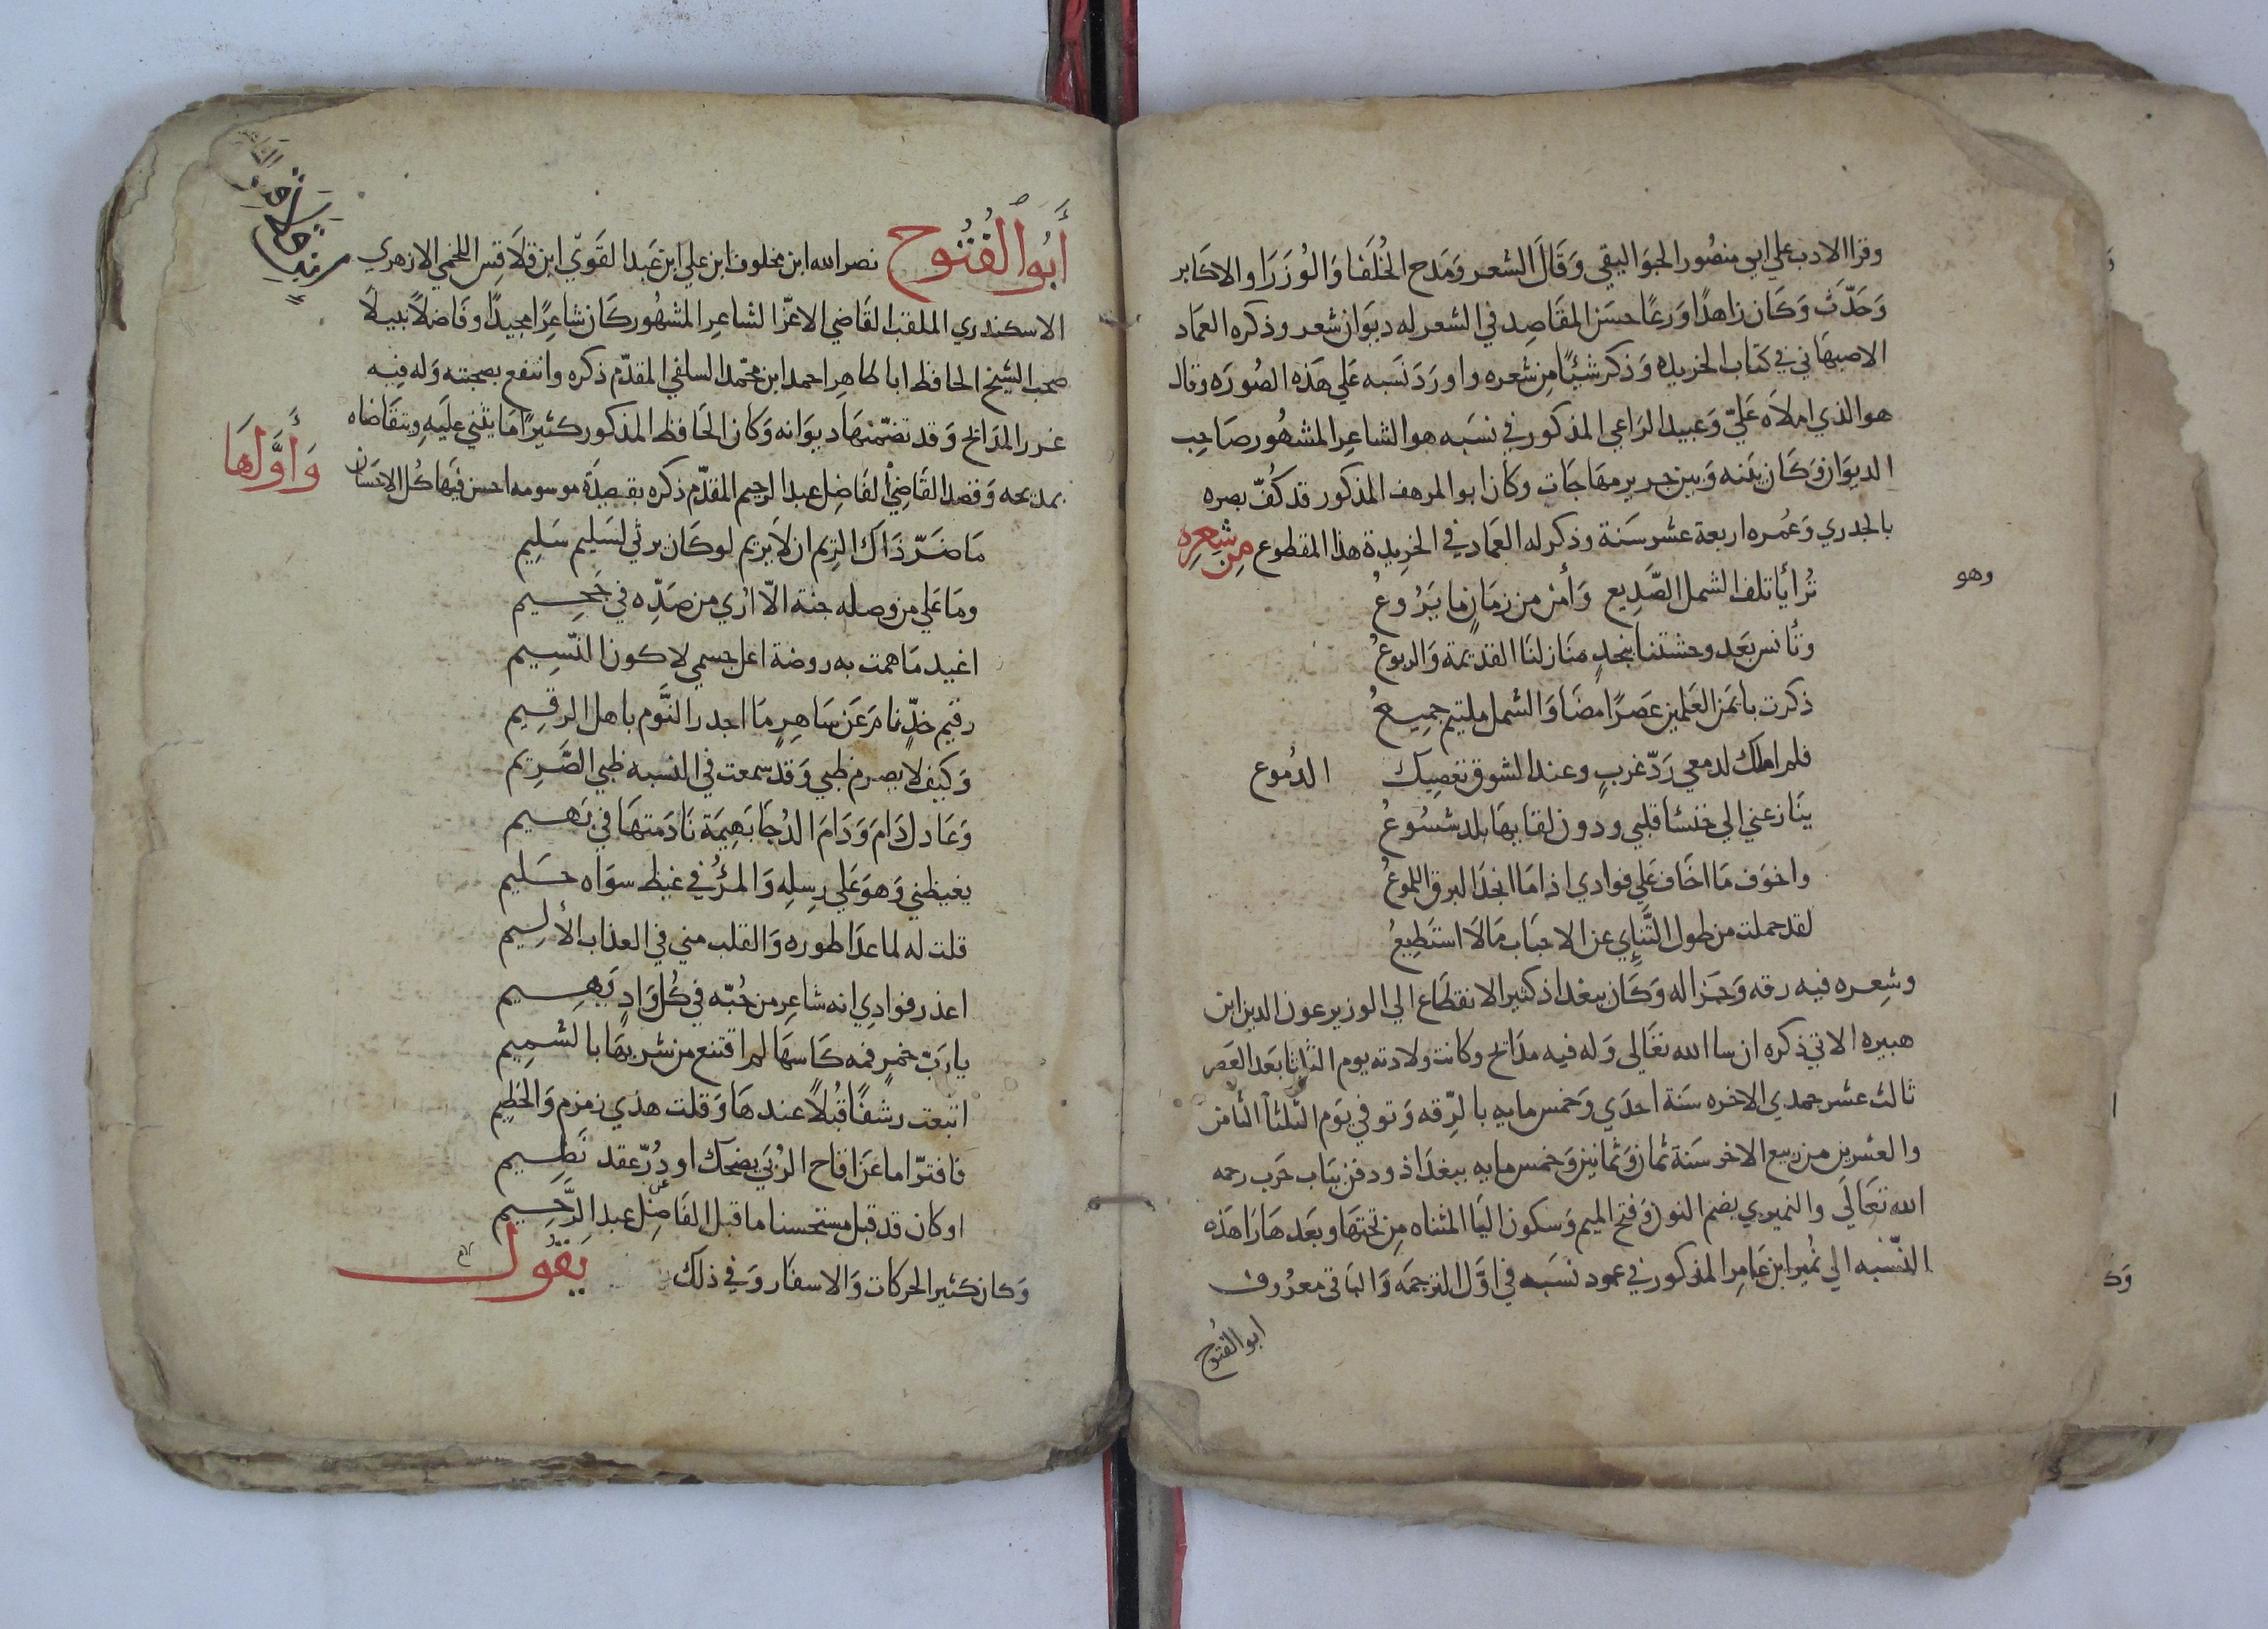 وقرا الادب علي ابي منصور الجواليقي وَقَالَ الشعر وَمَدح الخُلَفا وَالوُزَرَا والاكابر
وَحَدَّث وَكَان زاهدًا وَرعًا حسَن المقَاصِد في الشعر له ديوَان شعر وذكره العمَاد
الاصبهَاني في كتاب الخريده وَذكر شيئًا مِن شعره واورَدَ نَسَبه عَلي هَذه الصُورَه وقال
هو الذي املاَه عَليّ وَعبيد الرَاعي المذكور في نسَبه هو الشاعِر المشهُور صَاحِب
الديوَان وَكَان بَينه وَبين جرير مهَاجَات وكان ابو المرهف المذكور قد كُفّ بصره
بالجدري وَعُمره اربعة عشر سَنة وذكر له العمَاد في الخرِيدة هذا المقطوع مِن شِعرِه
وهو
تُرا يأتلف الشمل الصَّدِيع وَأمن من زمَانٍ مَا يَرُوعُ
وتأنس بَعد وحشتنا بنجدٍ منَازلنَا القدِيمَة وَالربوعُ
ذكرت بايمَن العَلمين عَصرًا مضَا وَالشمل ملتيم جميعُ
فلم املك لدمعي رَدّ غربٍ وعند الشوق تعصِيك الدُموع
ينَازعني الي خنسَا قلبي ودون لقايهَا بلد شسُوعُ
واخوَف مَا اخَاف عَلي فوادي اذا مَا انجَدَ البرق اللموعُ
لقد حملت من طول التَّنَاءِي عن الاحبَاب مَا لَا استَطِيعُ
وشِعره فيه رقه وَجَزاله وَكَان ببغداذ كثير الانقطَاع الي الوزير عون الدين ابن
هبيره الاتي ذكره ان شا الله تعَالى وَله فيه مدَائح وكانت ولادته يوم الثلثا بَعد العَصر
ثالث عشر جمدي الاخره سَنة احدَي وَخمس مايه بالرّقه وَتوفي يوَم الثلثا الثامن
والعشرين من ربيع الاخر سَنة ثمان وَثمانين وَخمس مايه ببغدَاذ ودفن ببَاب حَرب رحمه
الله تعَالَى والنميري بضم النون وَفتح الميم وَسكون اليَا المثناه مِن تحتهَا وبعَدهَا رَا هَذه
النّسبه الي نُمير ابن عَامِر المذكور في عمود نسَبه في اوَّل الترجمَه وَالبَاقي معرُوف
ابو الفتوح
أَبُو الفُتُوح نصر الله ابن مخلوف ابن علي ابن عَبد القَوَيّ ابن قلاَقِس اللخمي الازهري
الاسكندري الملقب القَاضي الاعزّ الشاعِر المشهُور كَان شاعِرًا مجيدًا وفَاضلاً نبيلاً
صحب الشيخ الحافظ ابا طاهِر احمد ابن محمّد السلفي المقدّم ذكره وانتفع بصحبته وَله فيه
غرر المدَائح وَقد تضمّنهَا ديوَانه وَكان الحَافظ المذكور كثيرًا مَا يثني عليَهِ ويتقَاضَاه
بمديحه وَقصد القَاضِيْ الفَاضِل عبد الرحيم المقدّم ذكره بقصِيدَة موسومه احسن فيَهَا كُل الاحسَان وَأَوَّلهَا
مَا ضَرّ ذَاك الرِيم ان لاَ يريم لو كَان يرثي لسَليم سَلِيم
ومَا عَلي من وصله جنة الاّ اري من صَدِّه في جَحِيم
اغيد مَا همت به روضة اعل جسمي لاكون النّسِيم
رقيَم خدّ نامَ عَن سَاهِرٍ مَا اجدر النَّوم باهل الرقِيم
وَكيَف لا يصرم ظبي وَقد سمعت في النسبه ظبي الصَّرِيَم
وَعَاذل دَامَ وَدَامَ الدُجَا بَهيِمَة نَادَمتهَا في بَهيم
يغيظني وَهوَ عَلي رِسِلِه وَالمرُْ في غيظ سوَاه حَليم
قلت له لما عدَا طوره وَالقلب مني في العذَاب الأليم
اعذر فوادِي انه شاعِر من حُبّه في كُل وَادٍ يَهيم
يا رَبّ خمرٍ فمه كَاسهَا لم اقتنع من شربهَا بالشميِم
اتبعت رشفًا قُبلاً عندهَا وَقلت هذي زمزم وَالحَطِيم
فافترّ اما عَن اقاح الرُبَي يضحك او دُرّ عقد نَظِيم
او كان قد قبل مستحسنا ما قبل الفَاضِل عبد الرَّحِيم
وَكان كثير الحركات وَالاسفار وَفي ذلك يَقول